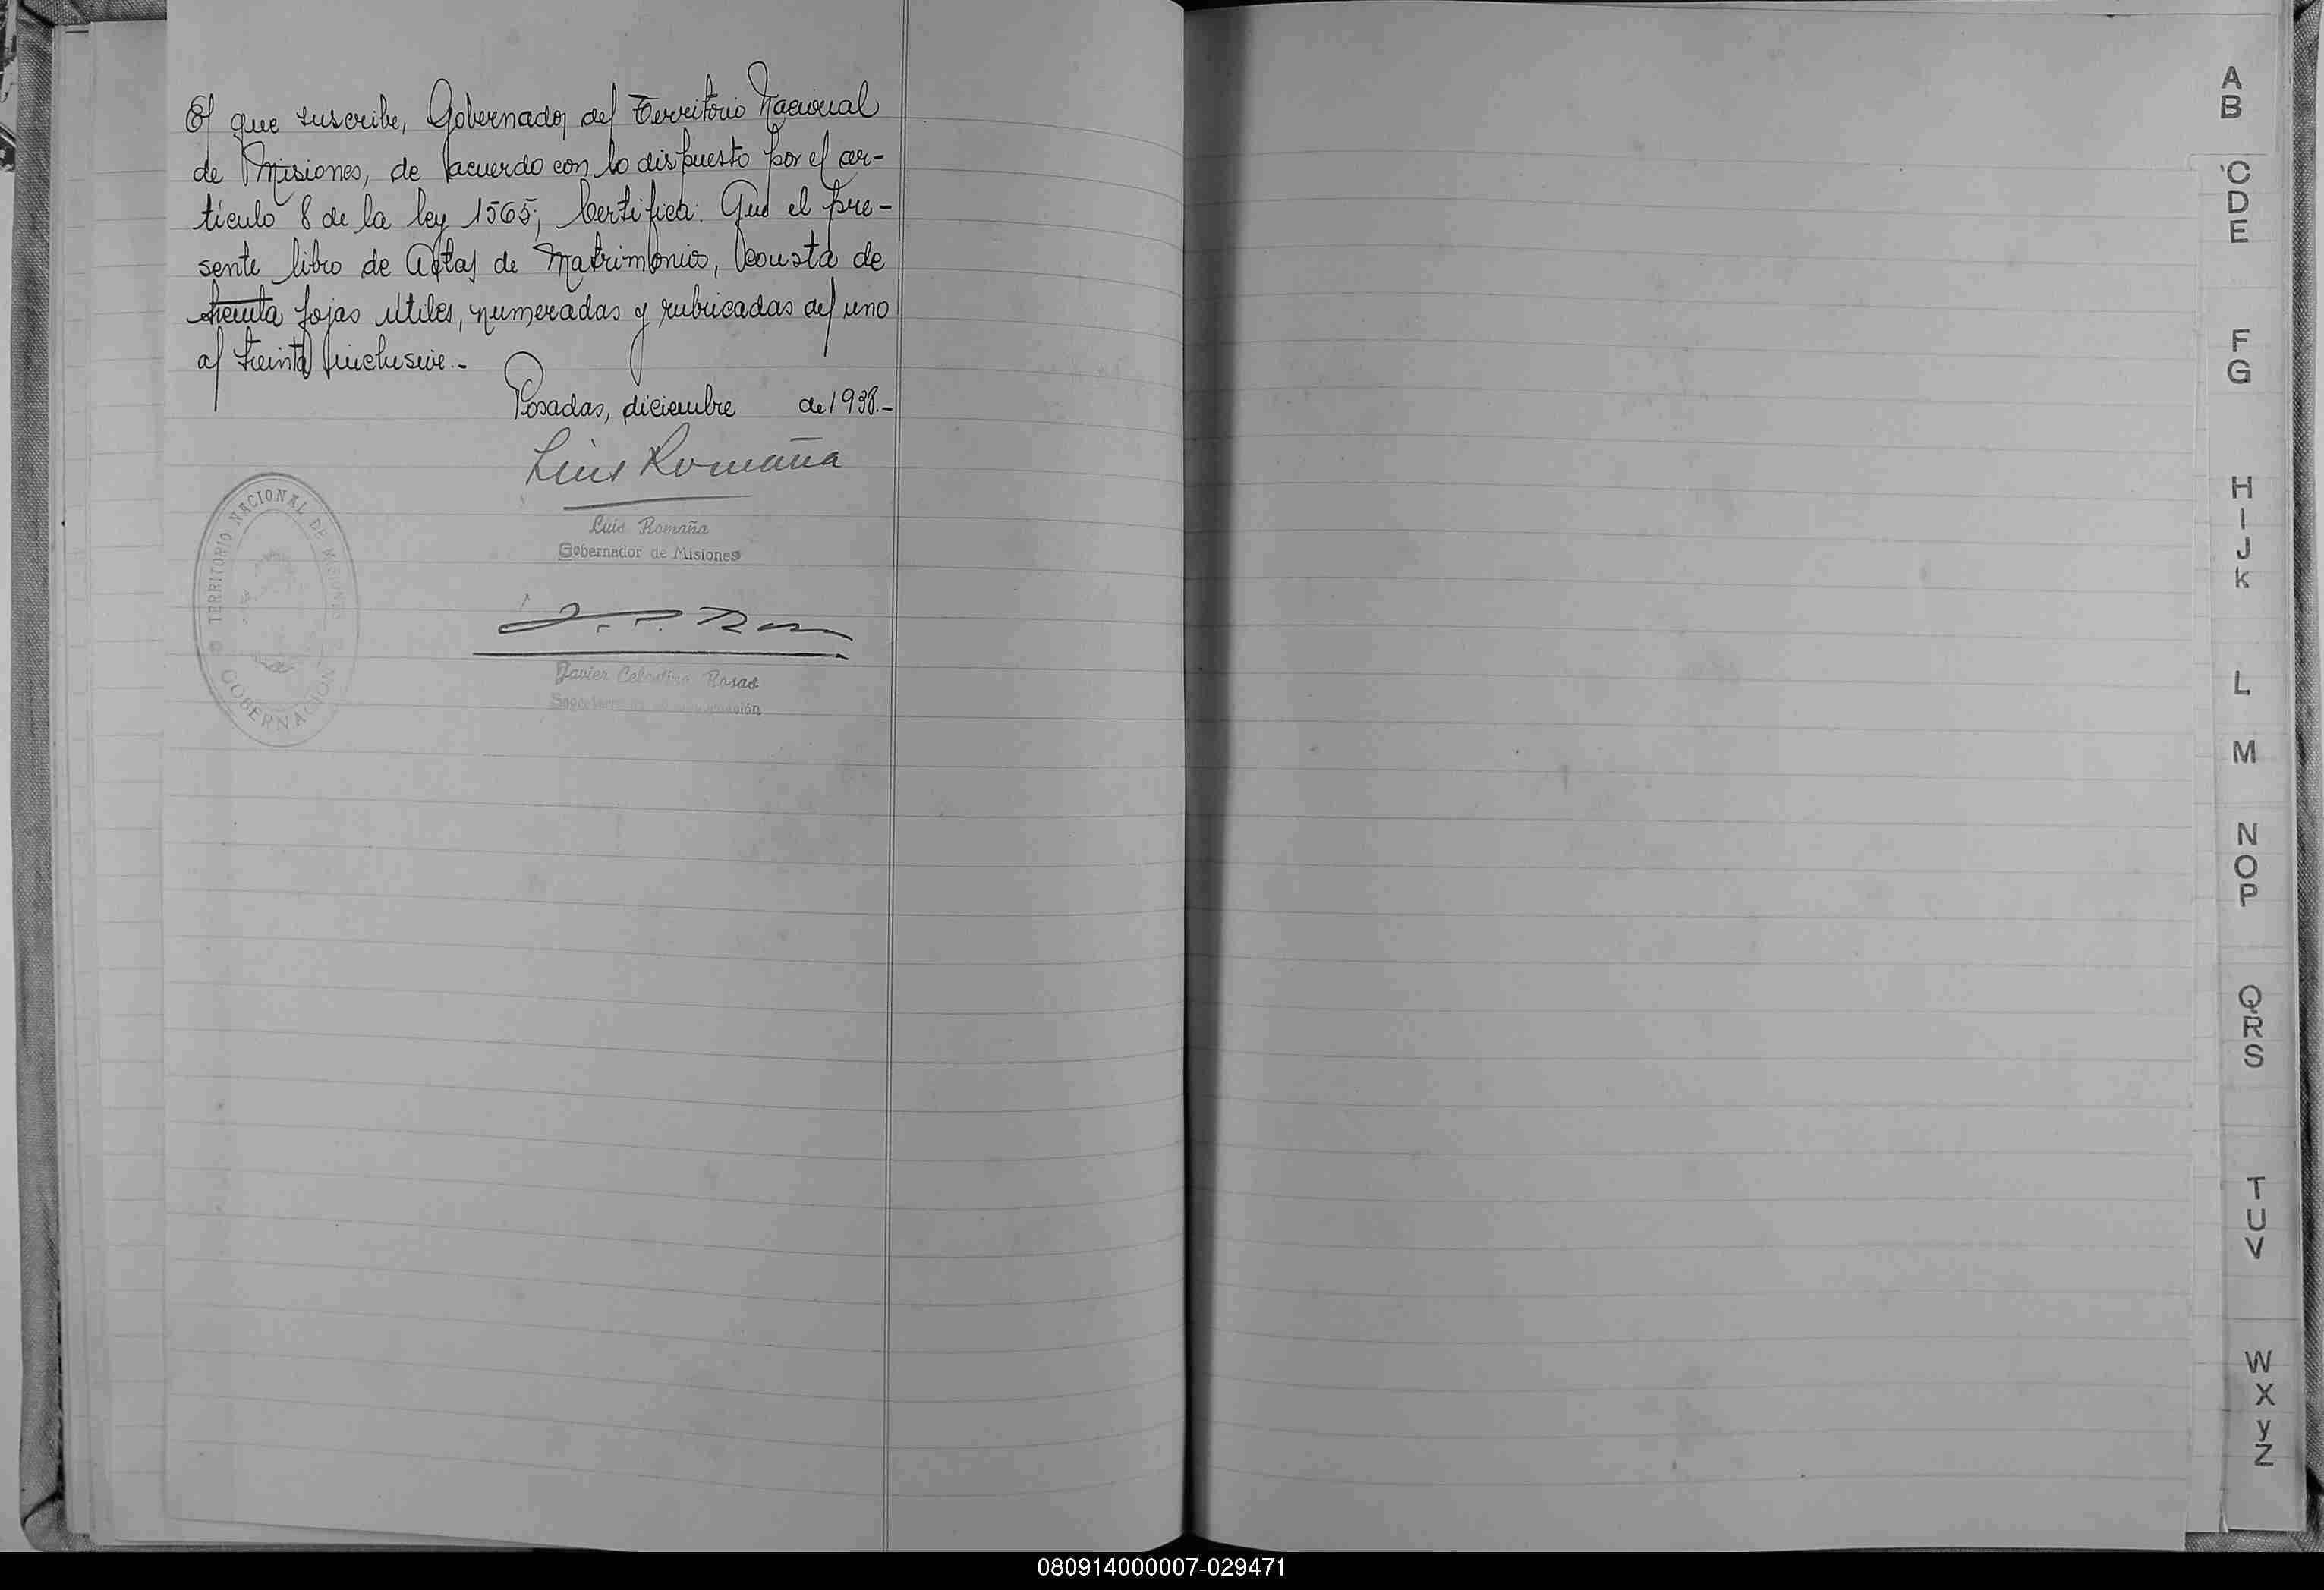 El que suscribe, Gobernador del Territorio Nacional
de Misiones, de acuerdo con lo dispuesto por el ar-
tículo 8 de la ley 1565; Certifica: Que el pre-
sente libro de Actas de Matrimonios, consta de
treinta fojas útiles, numeradas y rubricadas del uno
al treinta inclusive.-
Posadas, diciembre de 1938.-
Luis Romaña
Luis Romaña
Gobernador de Misiones
Javier Celestino Rosas
TERRITORIO NACIONAL DE MISIONES
GOBERNACION
A
B
C
D
E
F
G
H
I
J
K
L
M
N
O
P
Q
R
S
T
U
V
W
X
y
Z
080914000007-029471